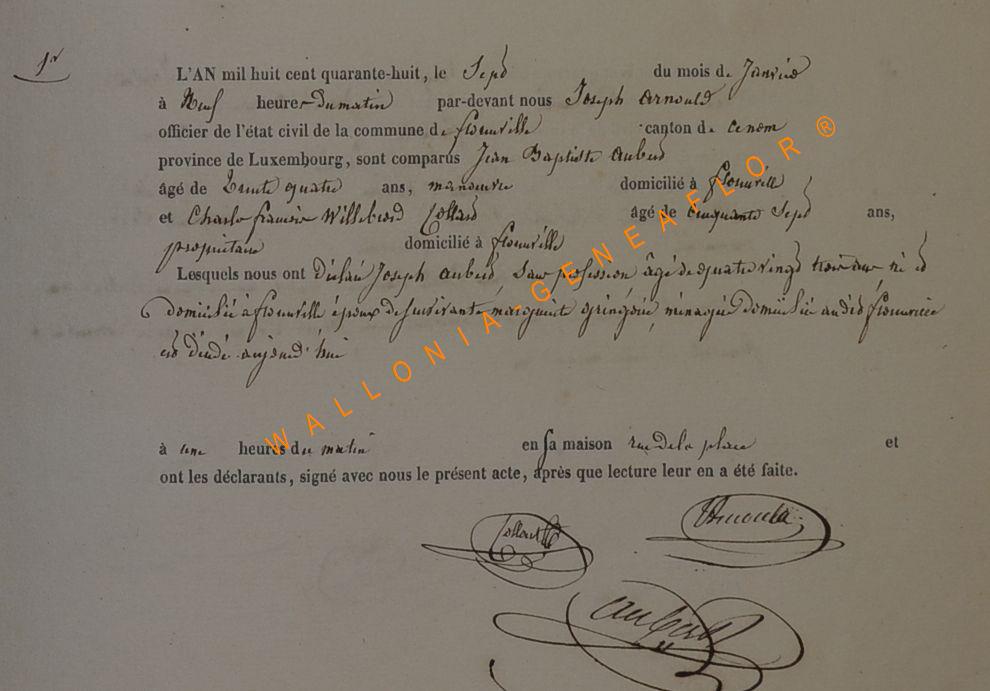 1er
L'AN mil huit cent quarante-huit, le Sept du mois de Janvier
à Neuf heures du matin par-devant nous Joseph Arnould
officier de l'état civil de la commune de florenville canton de
province de Luxembourg, sont comparus Jean Baptiste aubert
âgé de Trente quatre ans, manoeuvre domicilié à florenville
et Charles françois Willebrord Collard âgé de cinquante Sept ans,
propriétaire domicilié à florenville
Lesquels nous ont déclaré Joseph aubert, Sans profession âgé de quatre vingt trois ans né et
domicilié à florenville époux de survivante marguerite ménagère domiciliée audit florenville
est décédé aujourd'hui
à une heures du matin en sa maison rue de la place et
ont les déclarants, signé avec nous le présent acte, après que lecture leur en a été faite.
Collard
Arnould
aubert
WALLONIA-GENEAFLOR ®